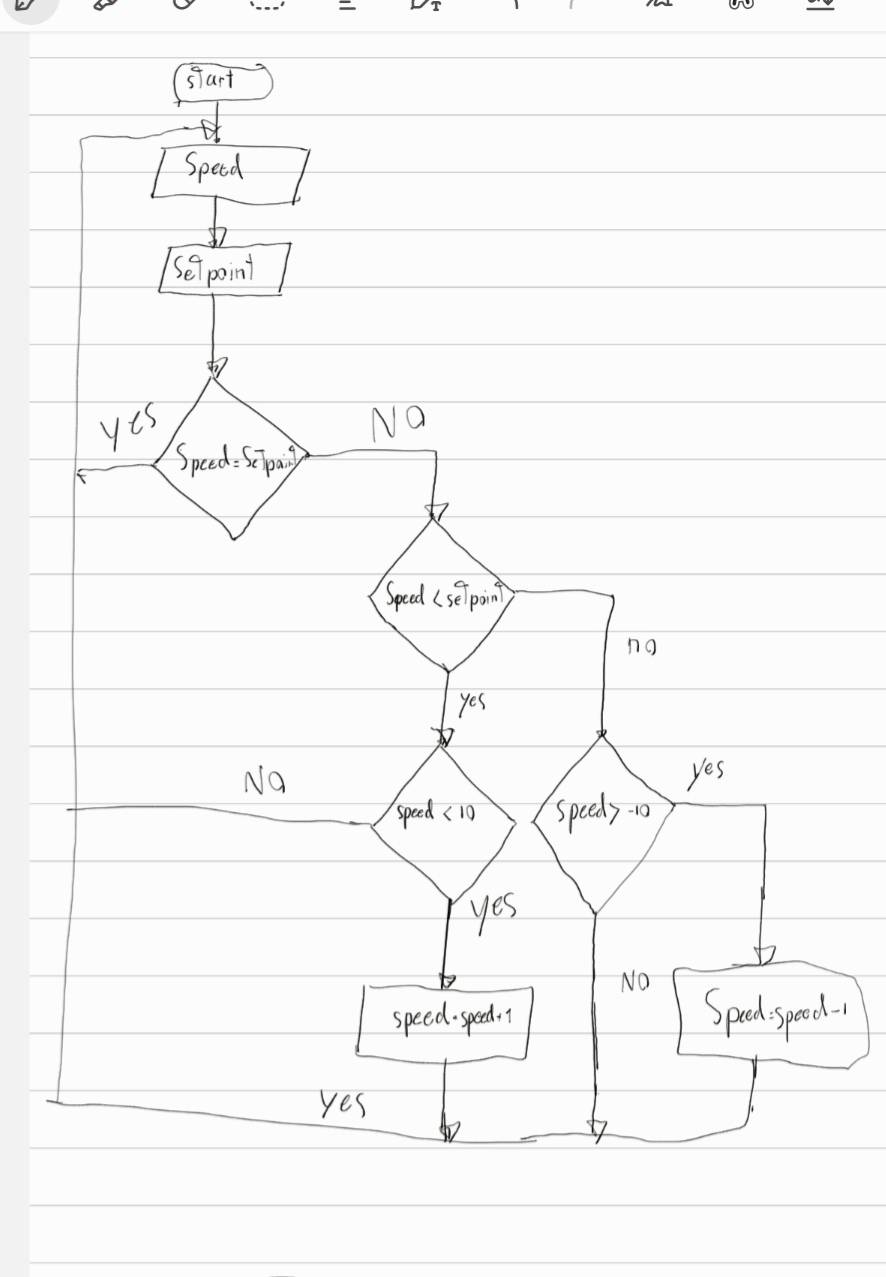 start
Speed
Setpoint
yes
Speed=Setpoint
NO
Speed<setpoint
no
yes
NO
speed<10
Speed>-10
yes
yes
NO
speed=speed+1
Speed=speed-1
yes